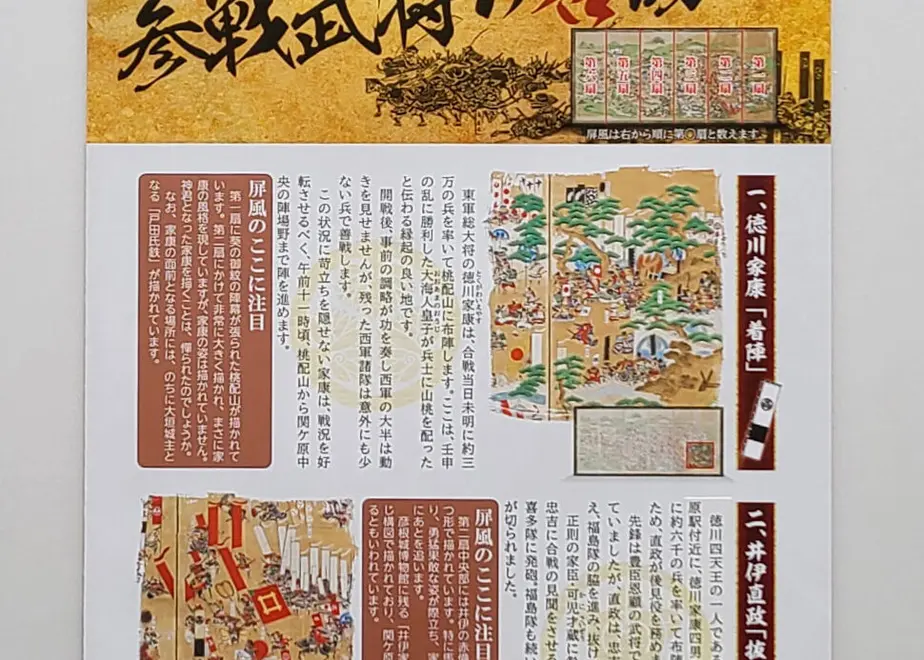 参戦武将の
第一扇
第二扇
第三扇
第四扇
第五扇
第六扇
屏風は右から順に第○扇と数えます。
一、徳川家康「着陣」
東軍総大将の徳川家康は、合戦当日未明に約三
万の兵を率いて桃配山に布陣します。ここは、壬申
の乱に勝利した大海人皇子が兵士に山桃を配った
と伝わる縁起の良い地です。
開戦後、事前の調略が功を奏し西軍の大半は動
きを見せませんが、残った西軍諸隊は意外にも少
ない兵で善戦します。
この状況に苛立ちを隠せない家康は、戦況を好
転させるべく、午前十一時頃、桃配山から関ケ原中
央の陣場野まで陣を進めます。
屏風のここに注目
第一扇に葵の御紋の陣幕が張られた桃配山が描かれて
います。第二扇にかけて非常に大きく描かれ、まさに家
康の風格を現していますが、家康の姿は描かれていません。
神君となった家康を描くことは、憚られたのでしょうか。
なお、家康の面前となる場所には、のちに大垣城主と
なる「戸田氏鉄」が描かれています。
二、井伊直政「抜
徳川四天王の一人である
原駅付近に、徳川家康四男
に約六千の兵を率いて布陣
ため、直政が後見役を務め
先鋒は豊臣恩顧の武将で
ていましたが、直政は、忠吉
え、福島隊の脇を進み、抜け
正則の家臣・可児才蔵に
忠吉に合戦の見聞をさせる
喜多隊に発砲。福島隊も続い
が切られました。
屏風のここに注目
第二扇中央部には井伊の赤備
つ形で描かれています。特に馬
り、勇猛果敢な姿が際立ち、家
にあとを追います。
彦根城博物館に残る「井伊家
じ構図で描かれており、関ケ原
るともいわれています。